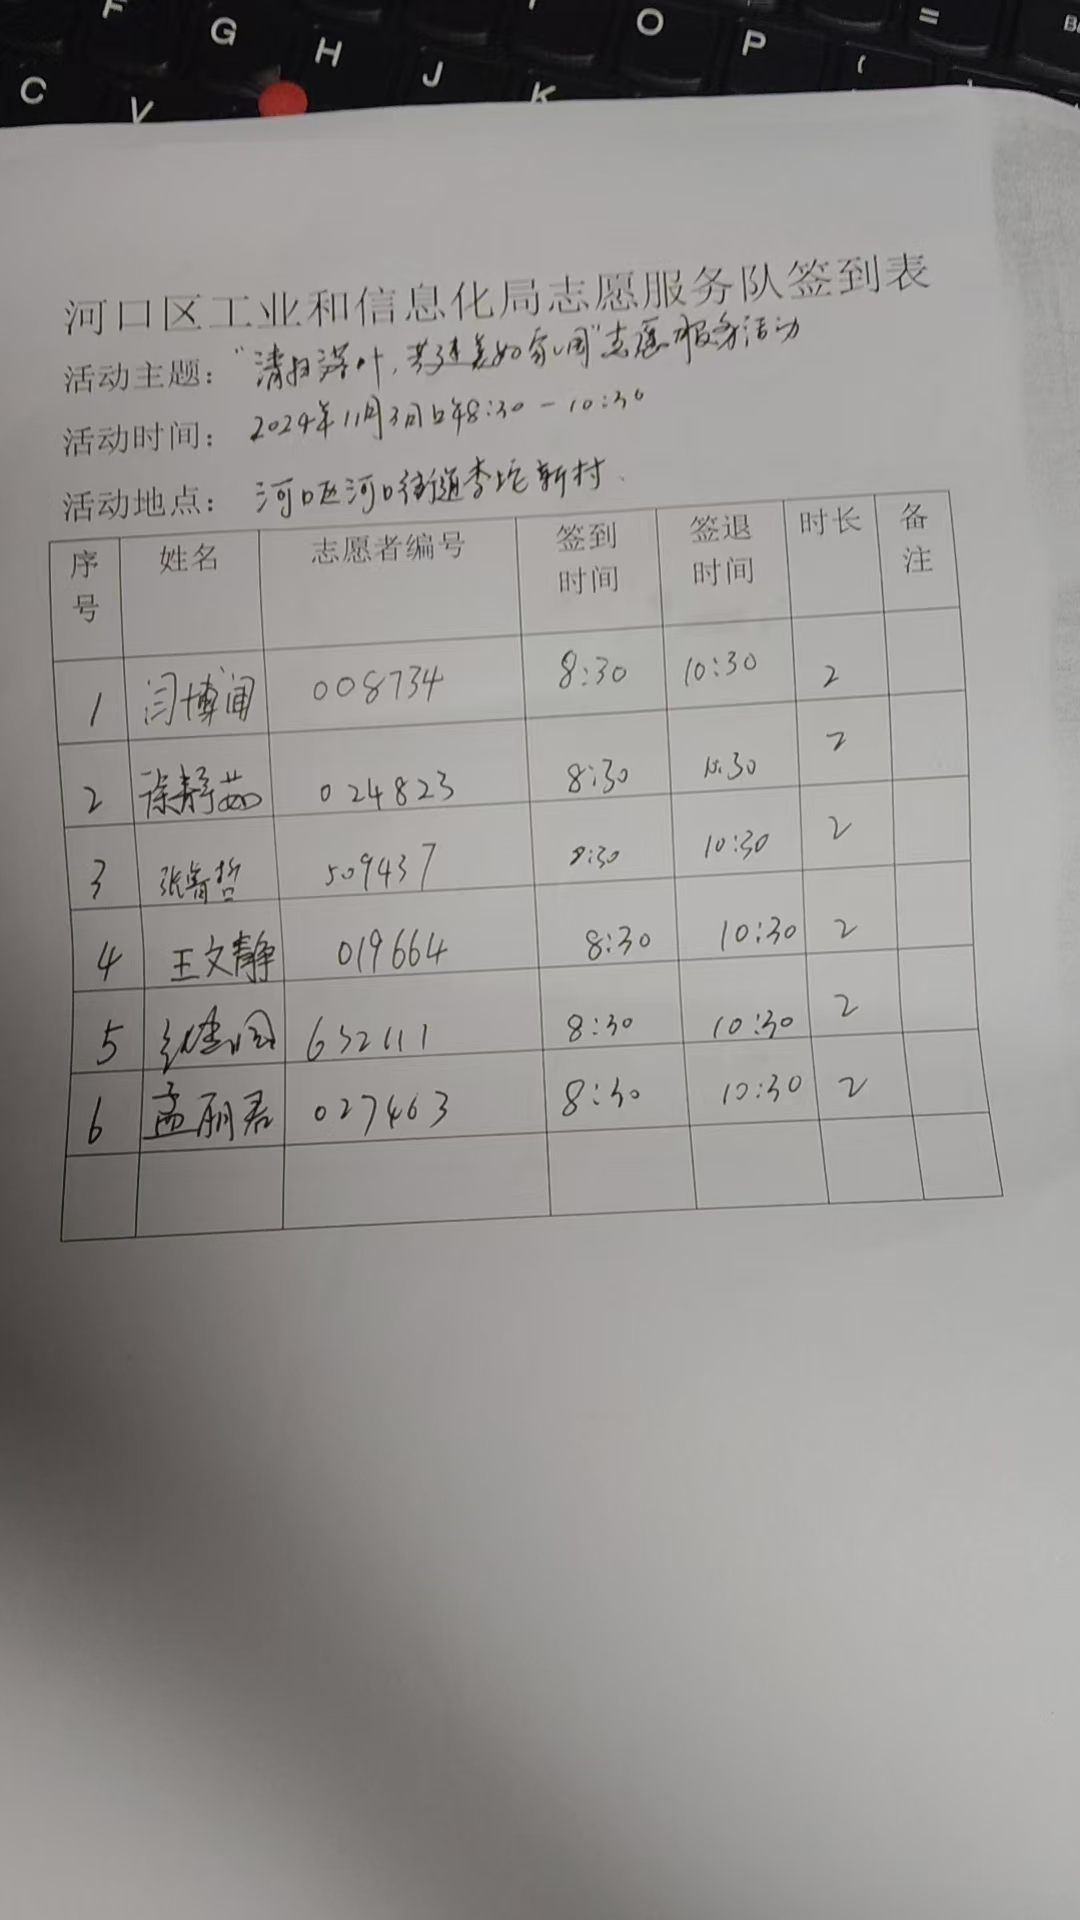 F G H J K O P = C V
河口区工业和信息化局志愿服务队签到表
活动主题：“清扫落叶，共建美好家园”志愿服务活动
活动时间：2024年11月3日上午8:30-10:30
活动地点：河口区河口街道李坨新村
序号 姓名 志愿者编号 签到时间 签退时间 时长 备注
1 闫博闻 008734 8:30 10:30 2
2 徐静茹 024823 8:30 10:30 2
3 张睿哲 509437 8:30 10:30 2
4 王文静 019664 8:30 10:30 2
5 632111 8:30 10:30 2
6 孟丽君 027463 8:30 10:30 2